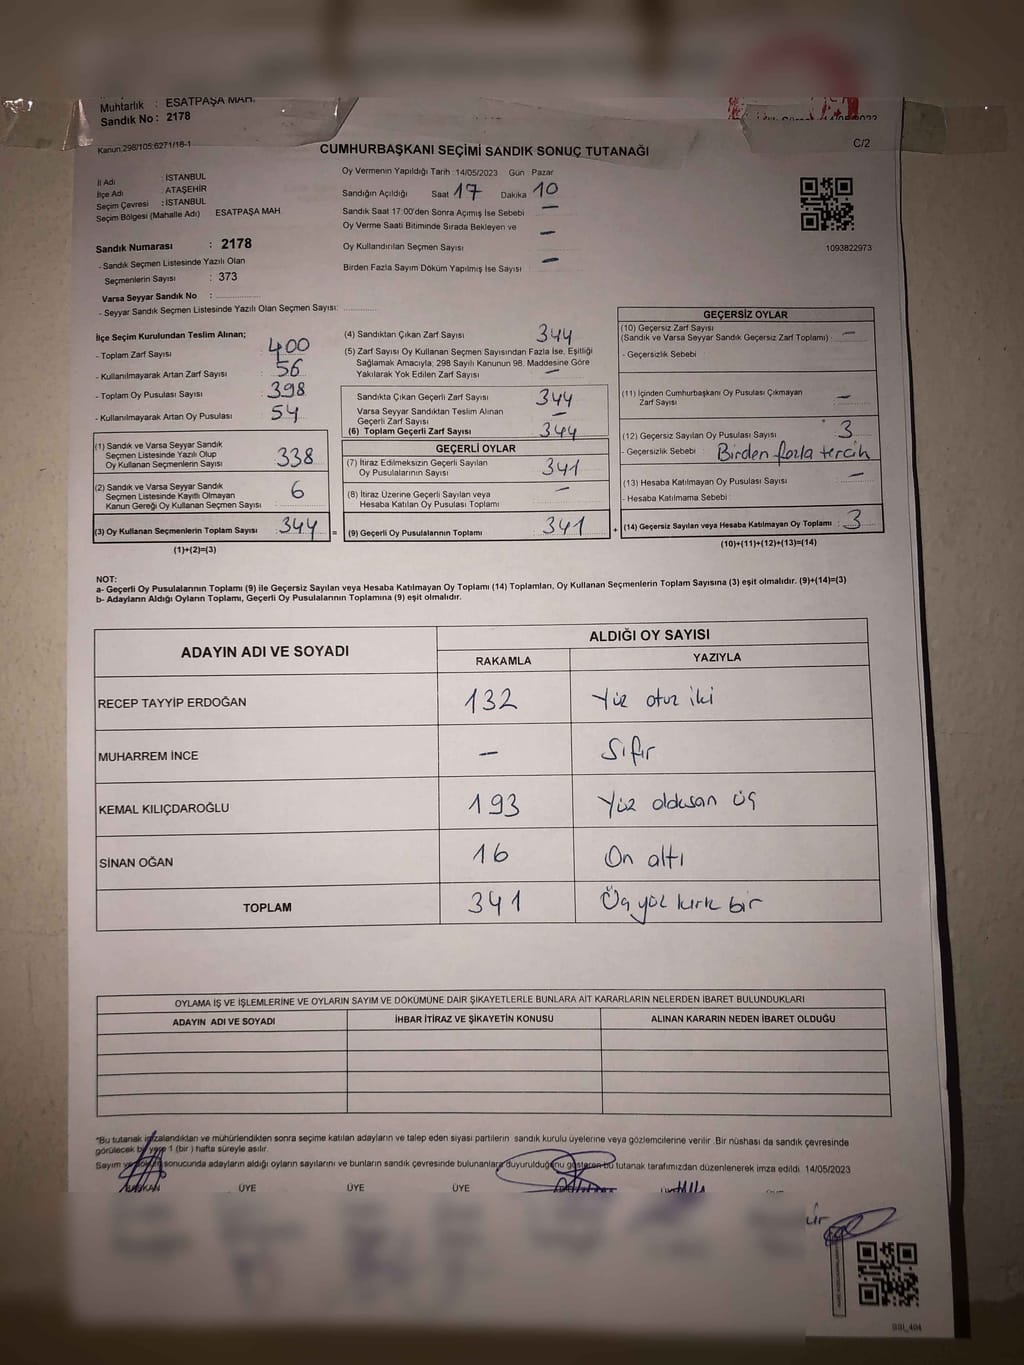 Muhtarlık : ESATPAŞA MAH.
Sandık No : 2178
Kanun:298/105:6271/18-1
CUMHURBAŞKANI SEÇİMİ SANDIK SONUÇ TUTANAĞI
C/2
İl Adı : İSTANBUL
İlçe Adı : ATAŞEHİR
Seçim Çevresi : İSTANBUL
Seçim Bölgesi (Mahalle Adı) ESATPAŞA MAH.
Oy Vermenin Yapıldığı Tarih : 14/05/2023 Gün : Pazar
Sandığın Açıldığı Saat 17 Dakika 10
Sandık Saat 17:00'den Sonra Açımış İse Sebebi —
Oy Verme Saati Bitiminde Sırada Bekleyen ve
Oy Kullandırılan Seçmen Sayısı —
Birden Fazla Sayım Döküm Yapılmış İse Sayısı —
1093822973
Sandık Numarası : 2178
- Sandık Seçmen Listesinde Yazılı Olan
Seçmenlerin Sayısı : 373
Varsa Seyyar Sandık No :
- Seyyar Sandık Seçmen Listesinde Yazılı Olan Seçmen Sayısı:
İlçe Seçim Kurulundan Teslim Alınan;
- Toplam Zarf Sayısı : 400
- Kullanılmayarak Artan Zarf Sayısı : 56
- Toplam Oy Pusulası Sayısı : 398
- Kullanılmayarak Artan Oy Pusulası : 54
(1) Sandık ve Varsa Seyyar Sandık
Seçmen Listesinde Yazılı Olup
Oy Kullanan Seçmenlerin Sayısı : 338
(2) Sandık ve Varsa Seyyar Sandık
Seçmen Listesinde Kayıtlı Olmayan
Kanun Gereği Oy Kullanan Seçmen Sayısı : 6
(3) Oy Kullanan Seçmenlerin Toplam Sayısı : 344 =
(1)+(2)=(3)
(4) Sandıktan Çıkan Zarf Sayısı 344
(5) Zarf Sayısı Oy Kullanan Seçmen Sayısından Fazla İse, Eşitliği
Sağlamak Amacıyla; 298 Sayılı Kanunun 98. Maddesine Göre
Yakılarak Yok Edilen Zarf Sayısı : —
Sandıkta Çıkan Geçerli Zarf Sayısı 344
Varsa Seyyar Sandıktan Teslim Alınan
Geçerli Zarf Sayısı —
(6) Toplam Geçerli Zarf Sayısı : 344
GEÇERLİ OYLAR
(7) İtiraz Edilmeksizin Geçerli Sayılan
Oy Pusulalarının Sayısı : 341
(8) İtiraz Üzerine Geçerli Sayılan veya
Hesaba Katılan Oy Pusulası Toplamı : —
(9) Geçerli Oy Pusulalarının Toplamı : 341 +
GEÇERSİZ OYLAR
(10) Geçersiz Zarf Sayısı
(Sandık ve Varsa Seyyar Sandık Geçersiz Zarf Toplamı) : —
- Geçersizlik Sebebi :
(11) İçinden Cumhurbaşkanı Oy Pusulası Çıkmayan
Zarf Sayısı : —
(12) Geçersiz Sayılan Oy Pusulası Sayısı : 3
- Geçersizlik Sebebi : Birden fazla tercih
(13) Hesaba Katılmayan Oy Pusulası Sayısı : —
- Hesaba Katılmama Sebebi :
(14) Geçersiz Sayılan veya Hesaba Katılmayan Oy Toplamı : 3
(10)+(11)+(12)+(13)=(14)
NOT:
a- Geçerli Oy Pusulalarının Toplamı (9) ile Geçersiz Sayılan veya Hesaba Katılmayan Oy Toplamı (14) Toplamları, Oy Kullanan Seçmenlerin Toplam Sayısına (3) eşit olmalıdır. (9)+(14)=(3)
b- Adayların Aldığı Oyların Toplamı, Geçerli Oy Pusulalarının Toplamına (9) eşit olmalıdır.
ADAYIN ADI VE SOYADI ALDIĞI OY SAYISI
RAKAMLA YAZIYLA
RECEP TAYYİP ERDOĞAN 132 Yüz otuz iki
MUHARREM İNCE — Sıfır
KEMAL KILIÇDAROĞLU 193 Yüz doksan üç
SİNAN OĞAN 16 On altı
TOPLAM 341 Üç yüz kırk bir
OYLAMA İŞ VE İŞLEMLERİNE VE OYLARIN SAYIM VE DÖKÜMÜNE DAİR ŞİKAYETLERLE BUNLARA AİT KARARLARIN NELERDEN İBARET BULUNDUKLARI
ADAYIN ADI VE SOYADI İHBAR İTİRAZ VE ŞİKAYETİN KONUSU ALINAN KARARIN NEDEN İBARET OLDUĞU
*Bu tutanak imzalandıktan ve mühürlendikten sonra seçime katılan adayların ve talep eden siyasi partilerin sandık kurulu üyelerine veya gözlemcilerine verilir .Bir nüshası da sandık çevresinde
görülecek bir yere 1 (bir ) hafta süreyle asılır.
Sayım ve sonucunda adayların aldığı oyların sayılarını ve bunların sandık çevresinde bulunanlara duyurulduğunu gösteren bu tutanak tarafımızdan düzenlenerek imza edildi. 14/05/2023
BAŞKAN ÜYE ÜYE ÜYE